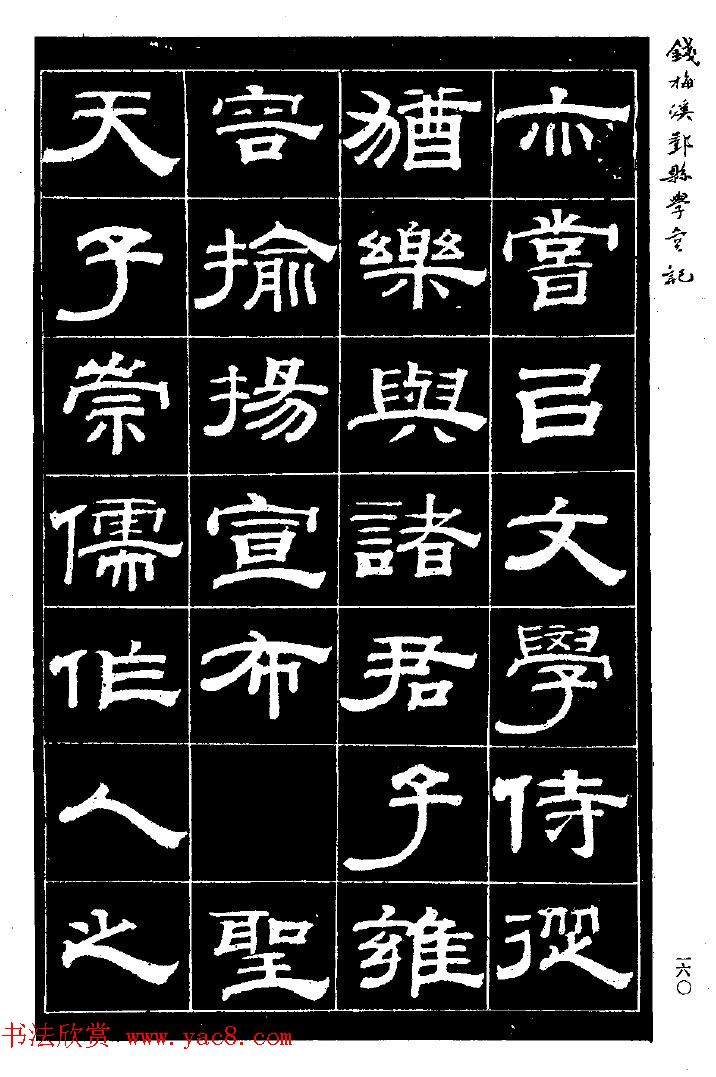 錢梅溪鄞縣學宮記
亦嘗㠯文學侍從
猶樂與諸君子雍
容揄揚宣布 聖
天子崇儒作人之
一六〇
书法欣赏 www.yac8.com